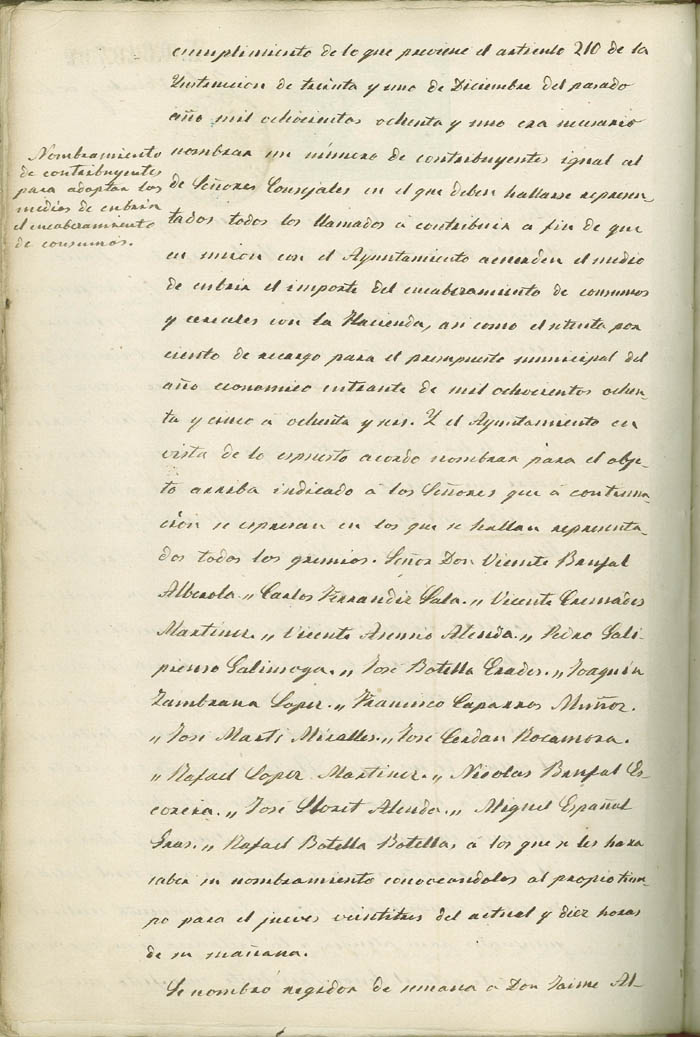 cumplimiento de lo que previene el artículo 210 de la
Instruccion de treinta y uno de Diciembre del pasado
año mil ochocientos ochenta y uno era necesario
nombrar un número de contribuyentes igual al
de Señores Consejales en el que deben hallarse represen-
tados todos los llamados á contribuir a fin de que
en union con el Ayuntamiento acuerden el medio
de cubrir el importe del encabezamiento de consumos
y cereales con la Hacienda, asi como el setenta por
ciento de recargo para el presupuesto municipal del
año economico entrante de mil ochocientos ochen-
ta y cinco á ochenta y seis. Y el Ayuntamiento en
vista de lo espuesto acordo nombrar para el obje-
to arriba indicado á los Señores que á continua-
ción se espresan en los que se hallan representa-
dos todos los gremios. Señor Don Vicente Brufal
Alberola. „ Carlos Ferrandiz Sala. „ Vicente Cremades
Martinez. „ Vicente Asencio Alenda. „ Pedro Gali-
pienso Galinsoga. „ José Botella Erades. „ Joaquin
Zambrana Lopez. „ Francisco Caparros Muñoz.
„ José Martí Miralles. „ José Cerdan Rocamora.
„ Rafael Lopez Martinez. „ Nicolas Brufal Es-
corera. „ José Lloret Alenda. „ Miguel Español
Gras. „ Rafael Botella Botellas á los que se les hara
saber su nombramiento convocandolos al propio tiem-
po para el jueves veintitres del actual y diez horas
de su mañana.
Se nombró regidor de semana á Don Jaime Al-
Nombramiento
de contribuyentes
para adoptar los
medios de cubrir
el encabezamiento
de consumos.